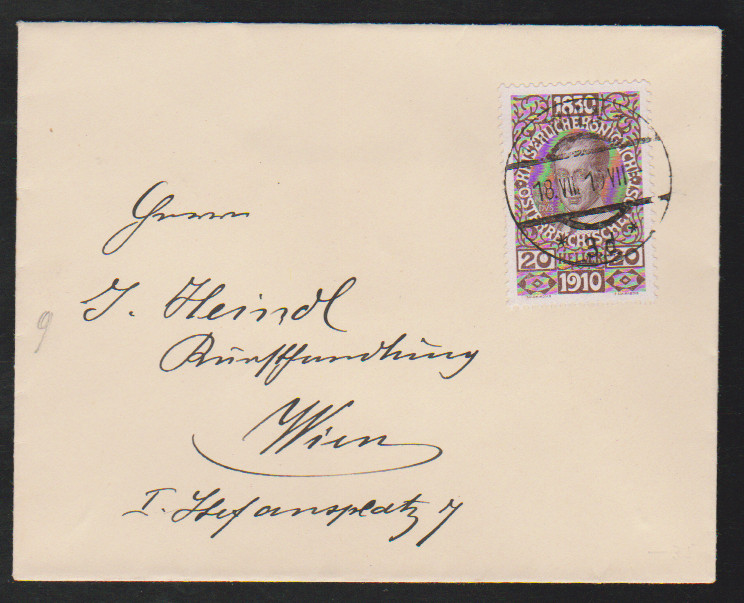 1830
KAISERLICHE KÖNIGLICHE ÖSTERREICHISCHE POST
18. VIII. 10 VII
* 3d *
20 HELLER 20
1910
Herrn
J. Heindl
Kunsthandlung
Wien
I. Stefansplatz 7
9